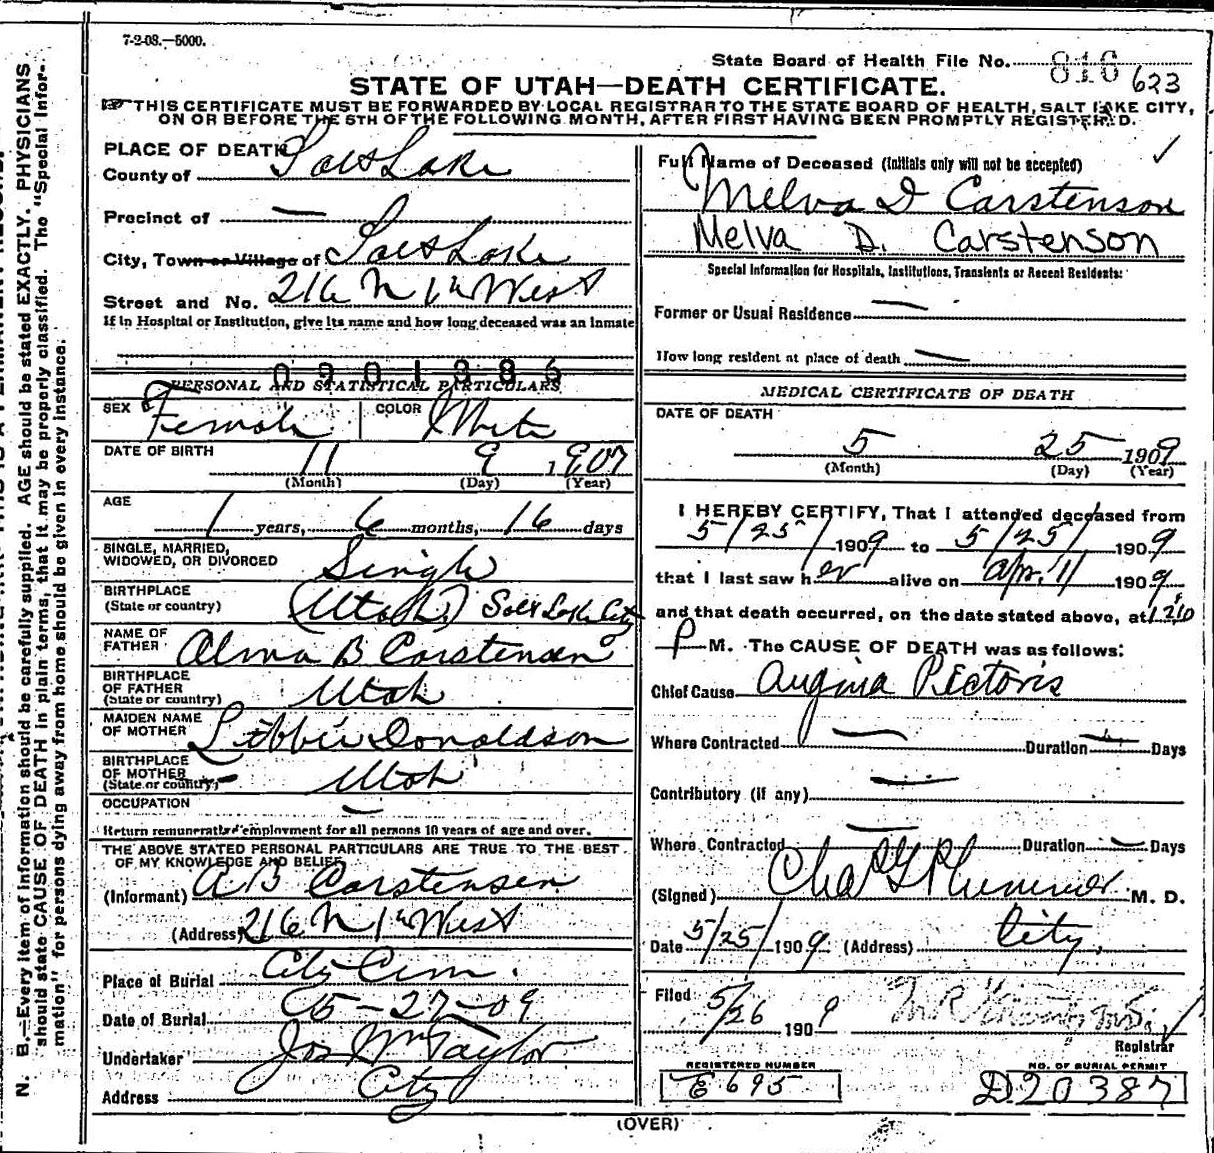 7-2-08.—5000.
State Board of Health File No. 816 623
STATE OF UTAH—DEATH CERTIFICATE.
THIS CERTIFICATE MUST BE FORWARDED BY LOCAL REGISTRAR TO THE STATE BOARD OF HEALTH, SALT LAKE CITY,
ON OR BEFORE THE 5TH OF THE FOLLOWING MONTH, AFTER FIRST HAVING BEEN PROMPTLY REGISTERED.
PLACE OF DEATH
County of Salt Lake
Precinct of —
City, Town or Village of Salt Lake
Street and No. 216 N 1st West
If in Hospital or Institution, give its name and how long deceased was an inmate
0901386
PERSONAL AND STATISTICAL PARTICULARS
SEX Female COLOR White
DATE OF BIRTH 11 9 1907
(Month) (Day) (Year)
AGE
1 years, 6 months, 16 days
SINGLE, MARRIED,
WIDOWED, OR DIVORCED Single
BIRTHPLACE
(State or country) (Utah) Salt Lake City
NAME OF
FATHER Alma B Carstensen
BIRTHPLACE
OF FATHER
(State or country) Utah
MAIDEN NAME
OF MOTHER Libbie Donaldson
BIRTHPLACE
OF MOTHER
(State or country) Utah
OCCUPATION —
Return remunerative employment for all persons 10 years of age and over.
THE ABOVE STATED PERSONAL PARTICULARS ARE TRUE TO THE BEST
OF MY KNOWLEDGE AND BELIEF
(Informant) A B Carstensen
(Address) 216 N 1st West
Place of Burial City Cem.
Date of Burial 5-27-09
Undertaker Jos Wm Taylor
Address City
Full Name of Deceased (Initials only will not be accepted)
Melva D Carstenson
Melva D. Carstenson
Special Information for Hospitals, Institutions, Transients or Recent Residents:
Former or Usual Residence —
How long resident at place of death —
MEDICAL CERTIFICATE OF DEATH
DATE OF DEATH
5 25 1909
(Month) (Day) (Year)
I HEREBY CERTIFY, That I attended deceased from
5/25/ 1909 to 5/25/ 1909
that I last saw her alive on Apr. 11 1909
and that death occurred, on the date stated above, at
P M. The CAUSE OF DEATH was as follows:
Chief Cause Augina Pectoris
Where Contracted — Duration — Days
Contributory (if any) —
Where Contracted — Duration — Days
(Signed) Chas G Plummer M. D.
Date 5/25/ 1909 (Address) City.
Filed 5/26 1909
Registrar
REGISTERED NUMBER
E 695
NO. OF BURIAL PERMIT
D.20387
(OVER)
N. B.—Every item of information should be carefully supplied. AGE should be stated EXACTLY. PHYSICIANS
should state CAUSE OF DEATH in plain terms, that it may be properly classified. The "Special Infor-
mation" for persons dying away from home should be given in every instance.